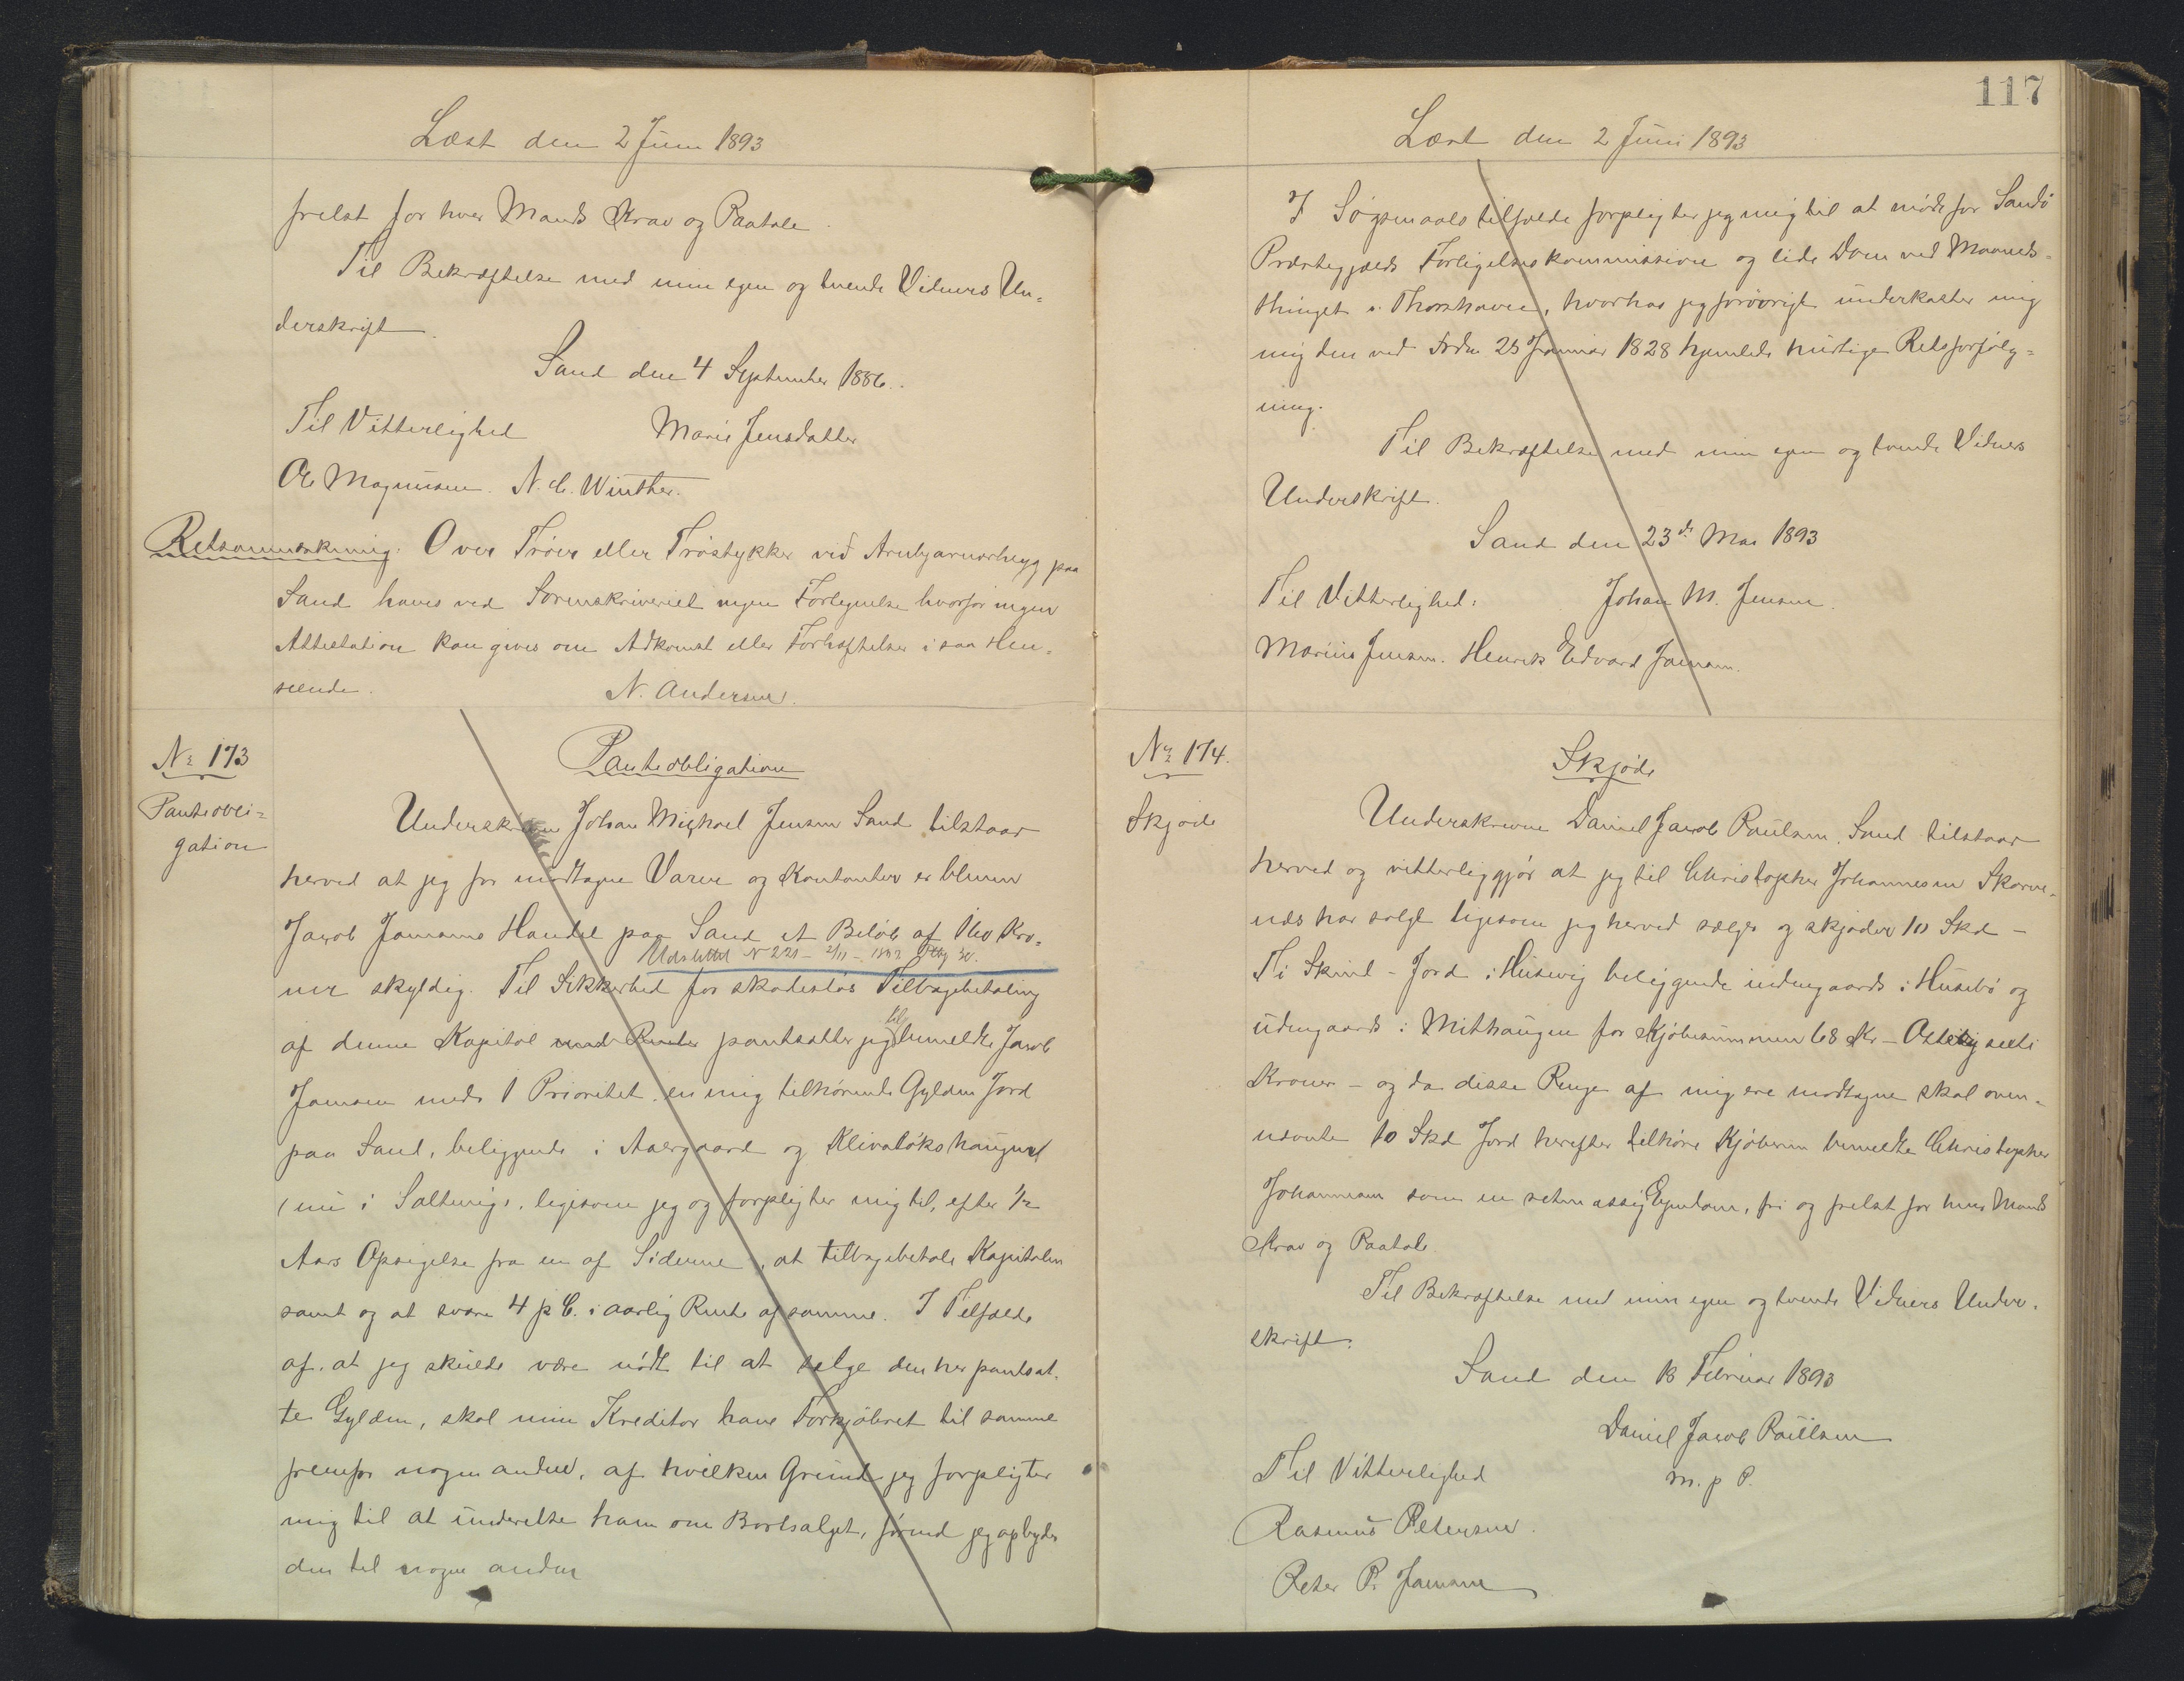 Læst den 2 Juni 1893
frelst for hver Mands Krav og Paatale.
Til Bekræftelse med min egen og tvende Vidners Un-
derskrift.
Sand den 4 September 1886.
Til Vitterlighed Marie Jensdatter
Ole Magnussen. N. C. Winther.
Retsanmærkning: Over Trøer eller Trøstykker við paa
Sand haves ved Sorenskriveriet ingen Fortegnelse hvorfor ingen
Attestation kan gives om Adkomst eller Forhæftelser i saa Hen-
seende. N. Andersen.
No 173
Panteobli-
gation
Panteobligation
Underskrevne Johan Michael Jensen Sand tilstaar
herved at jeg for modtagne Varer og Kontanter er bleven
Jacob Jensens Handel paa Sand et Beløb af Kro-
Udslettet No 221 - 2/11 -
ner skyldig. Til Sikkerhed for skadesløs Tilbagebetaling
af denne Kapital med Renter pantsætter jeg til bemeldte Jacob
Jensen med 1 Prioritet en mig tilhørende Gylden Jord
paa Sand, beliggende i Aargaard og
(nu i , ligesom jeg og forpligter mig til, efter 1/2
Aars Opsigelse fra en af Siderne, at tilbagebetale Kapitalen
samt og at svare 4 p C. i aarlig Rente af samme. I Tilfælde
af, at jeg skulde være nødt til at sælge den her pantsat-
te Gylden, skal min Kreditor have Forkjøbsret til samme
fremfor nogen anden, af hvilken Grund jeg forpligter
mig til at underrette ham om Bortsalget, førend jeg opbyder
den til nogen anden
117
Læst den 2 Juni 1893
I Søgsmaalstilfælde forpligter jeg mig til at møde for Sandø
Præstegjælds Forligelseskommission og lide Dom ved Maaneds-
thinget i Thorshavn, hvorhos jeg forøvrigt underkaster mig
mig den ved Frdn 25 Januar 1828 hjemlede hurtige Retsforfølg-
ning.
Til Bekræftelse med min egen og tvende Vidners
Underskrift.
Sand den 23de Mai 1893
Til Vitterlighed: Johan M. Jensen.
Marius Jensen. Henrik Edvard Jensen.
No 174.
Skjøde
Skjøde
Underskrevne Daniel Jacob Poulsen, Sand tilstaar
herved og vitterliggjør at jeg til Christopher Johannesen Skarve-
næs har solgt ligesom jeg herved sælger og skjøder 10 Skd -
Ti Skind - Jord i Husevig beliggende indengaards i Husebø og
udengaards i Mithaugen for Kjøbesummen 68 Kr - Otteogseeti
Kroner - og da disse Penge af mig ere modtagne skal oven-
nævnte 10 Skd Jord herefter tilhøre Kjøberen bemeldte Christopher
Johannesen som en retmæssig Ejendom, fri og frelst for hver Mands
Krav og Paatale
Til Bekræftelse med min egen og tvende Vidners Under-
skrift.
Sand den 18 Februar 1893
Daniel Jacob Poulsen
Til Vitterlighed m. p P.
Rasmus Petersen.
Peter P. Jensen